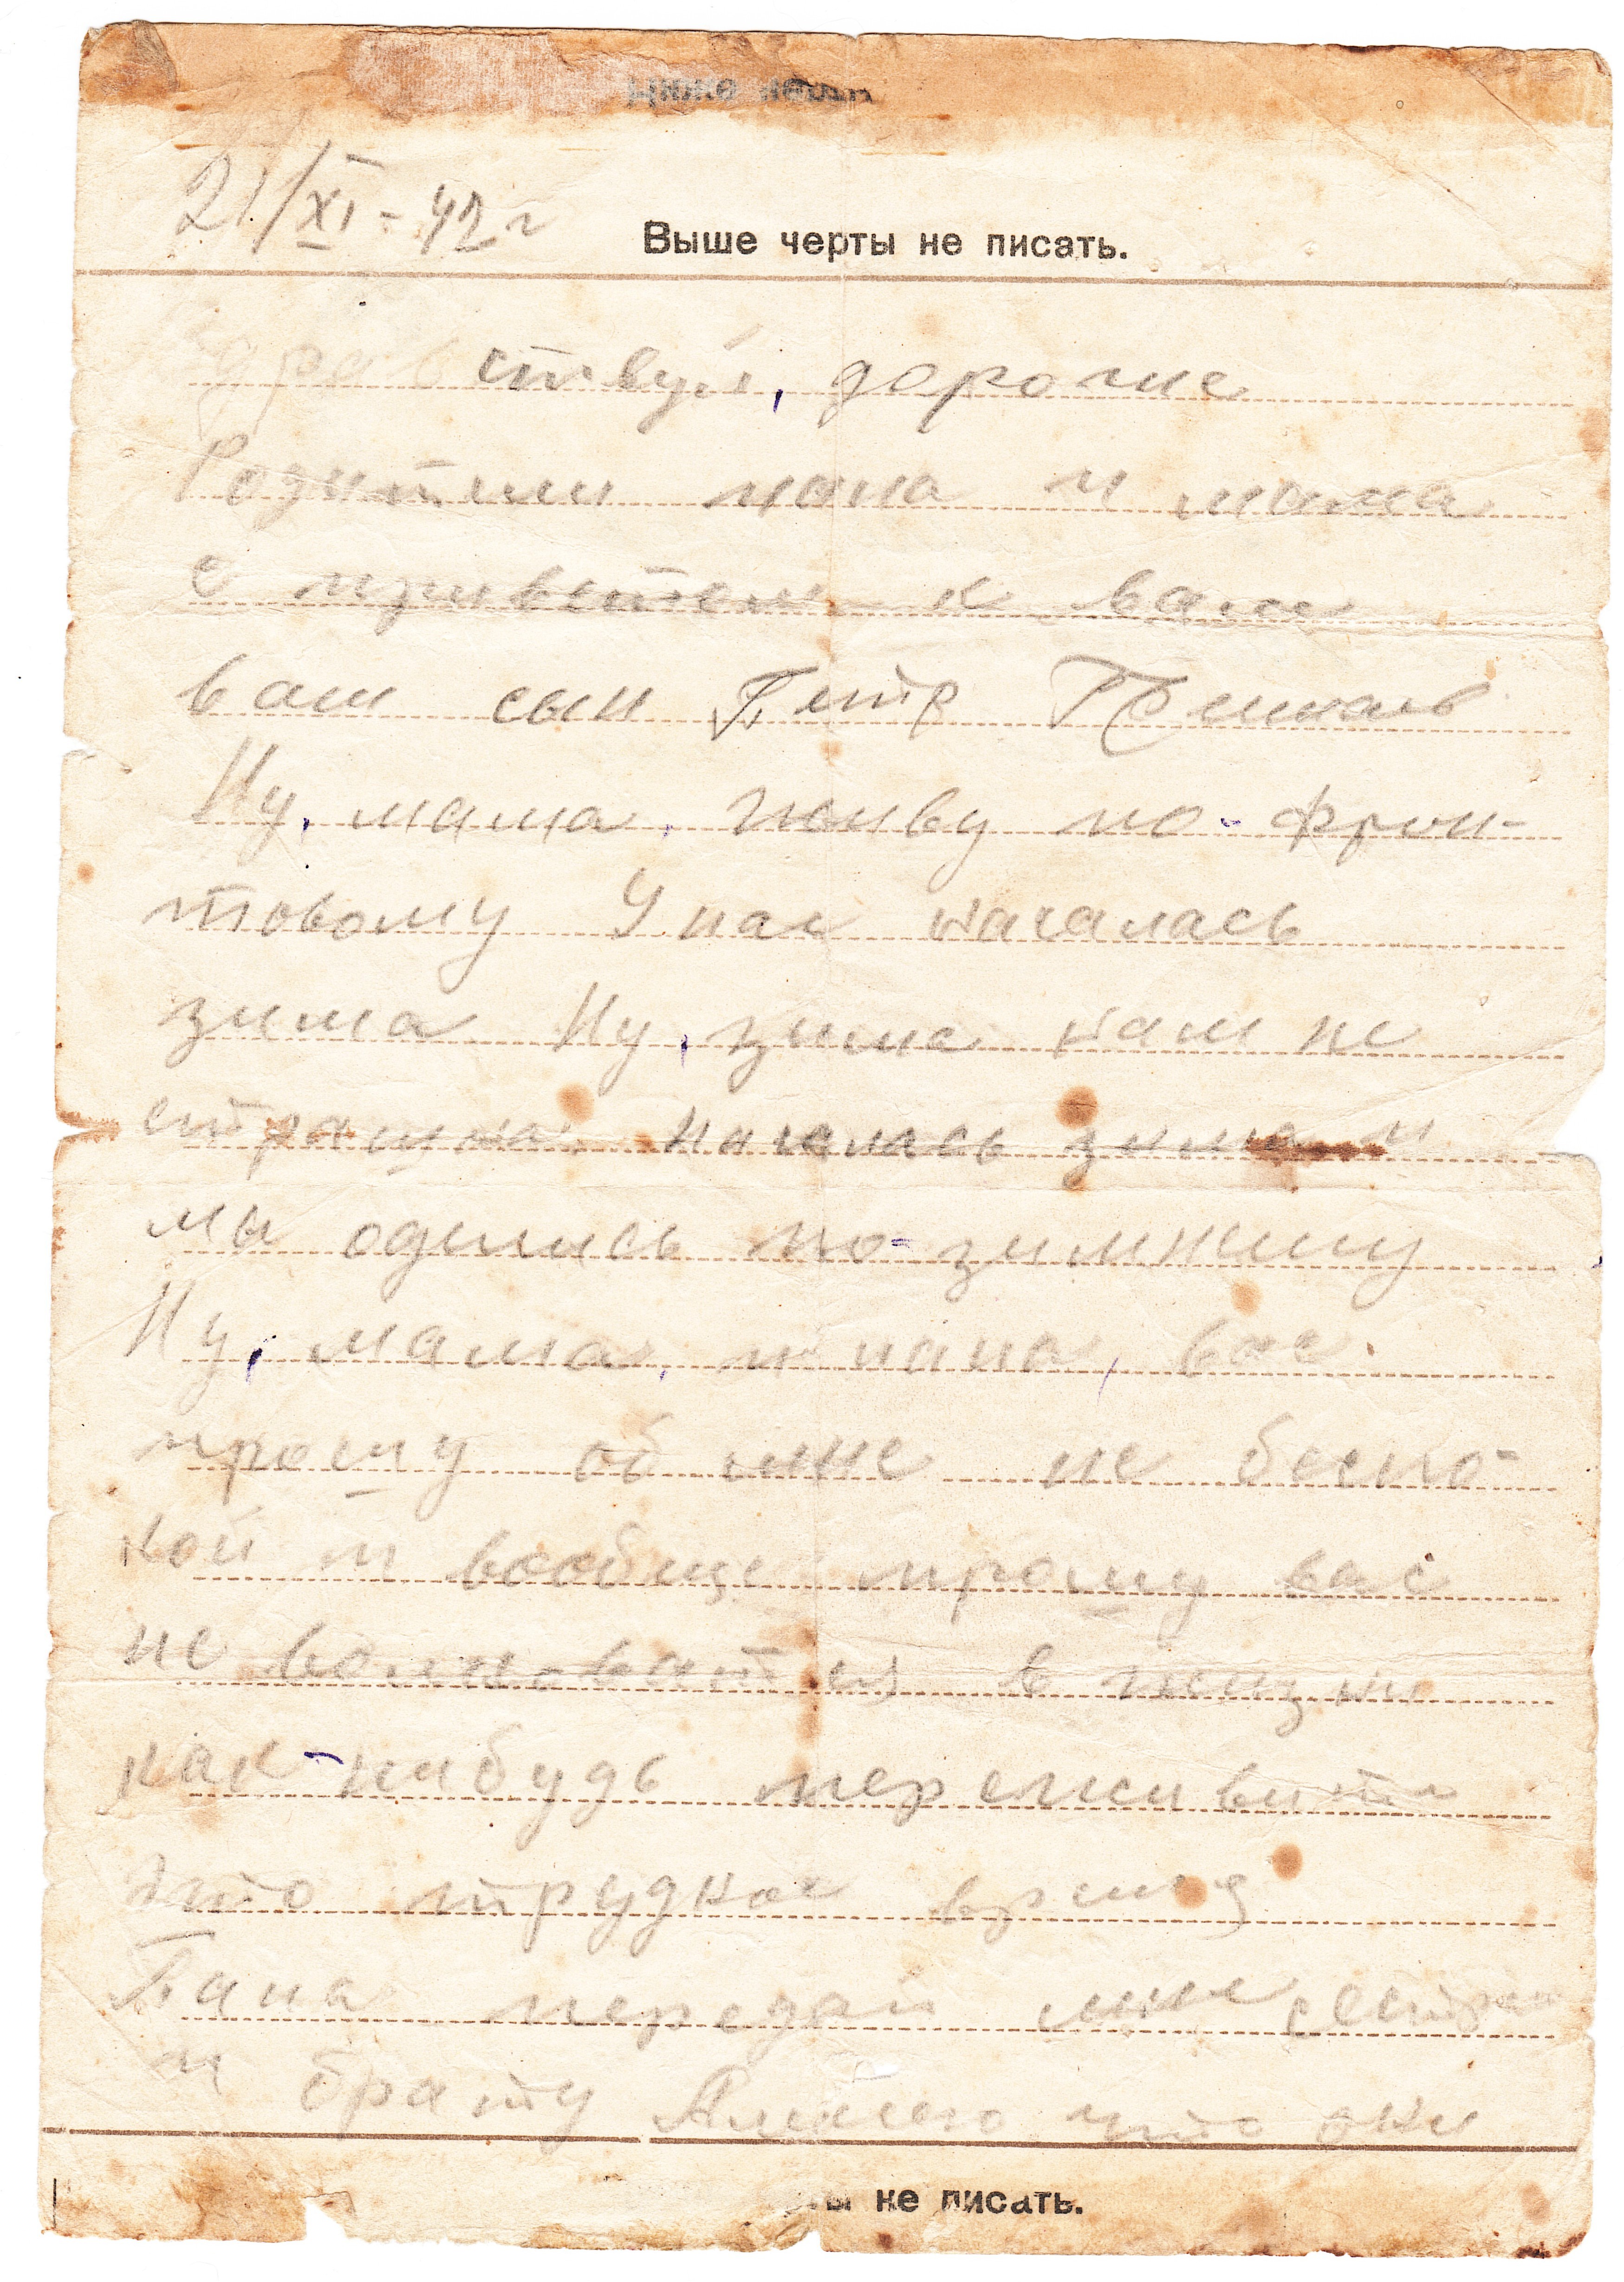 21/XI - 42 г
Выше черты не писать.
Здравствуй, дорогие
Родители папа и мама
с приветом к вам
ваш сын Петр
Ну, мама, живу по-фрон-
товому У нас началась
зима Ну, зима нам не
страшна началась зима и
мы оделись по-зимнему
Ну, мама, и папа, вас
прошу об мне не беспо-
кой и вообще прошу вас
не волноватся в жизни
как-нибудь переживите
это трудное время
Папа передай мне сестрам
и брату Алексею что они
ты не писать.